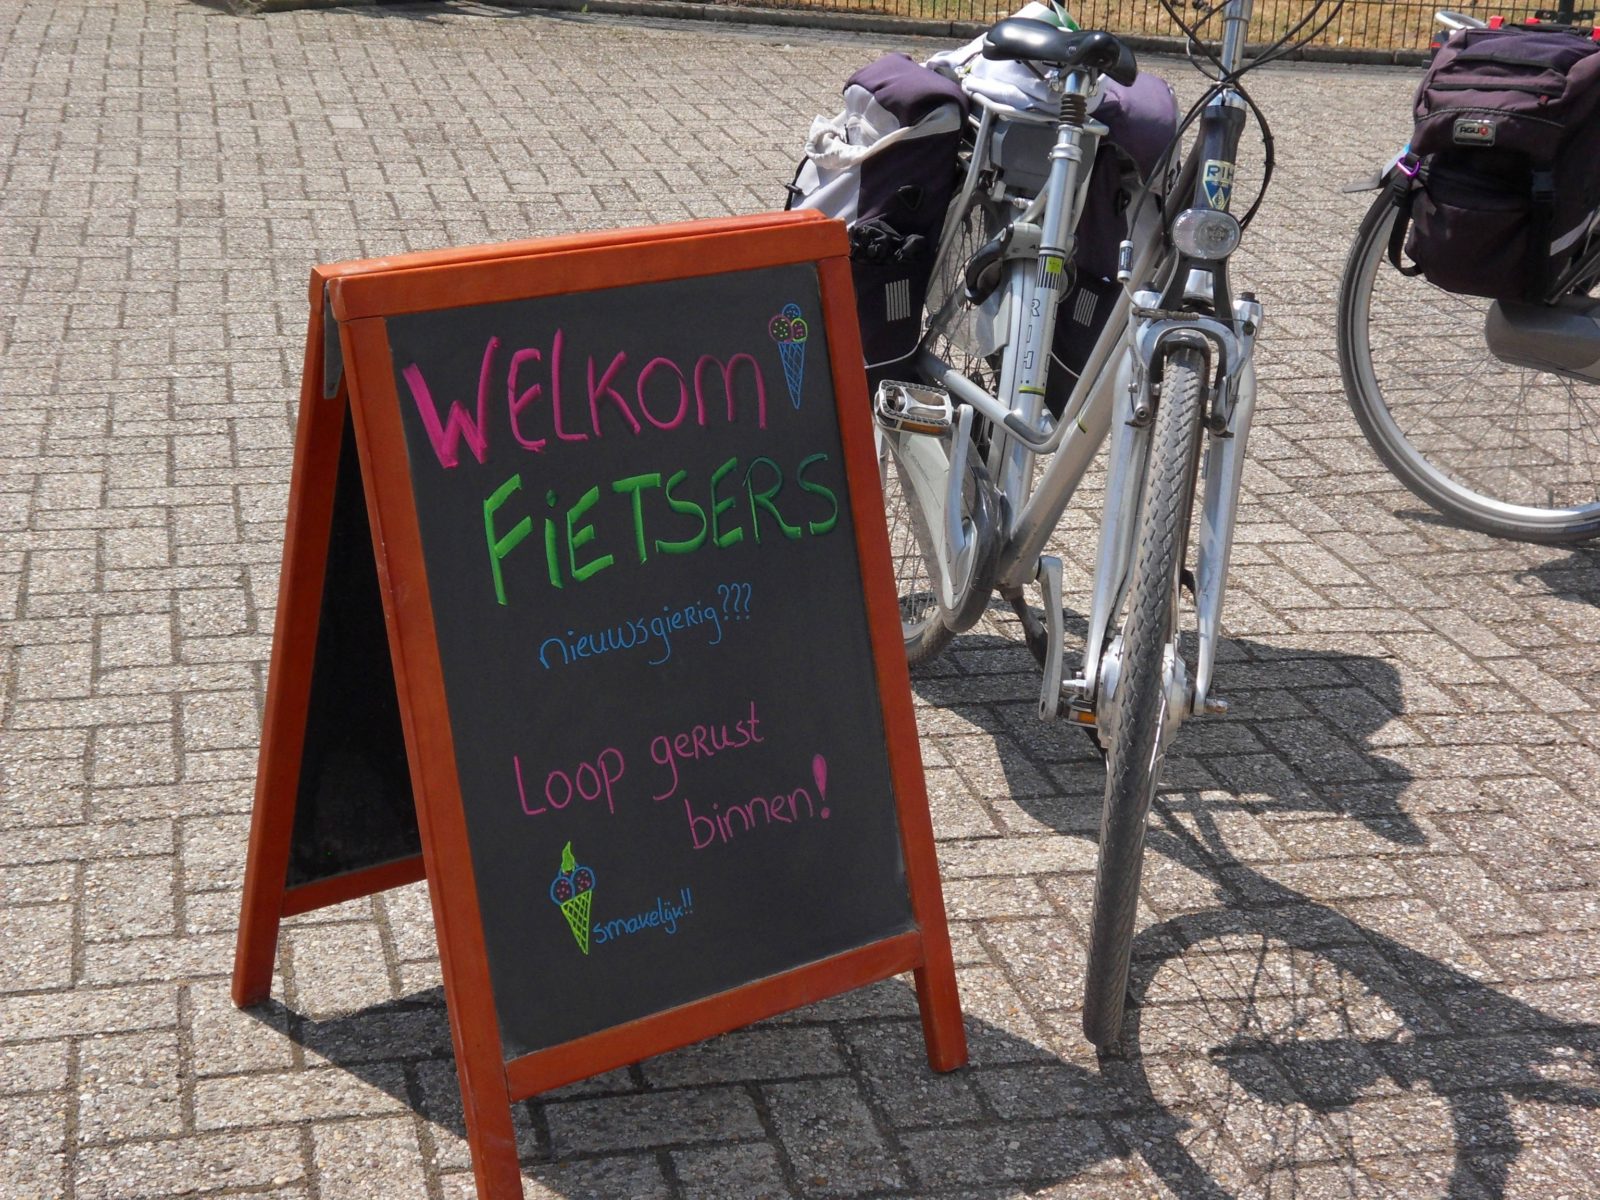 WELKOM
FiETSERS
nieuwsgierig???
Loop gerust
binnen!
smakelijk!!
RIH
RIH
AGU